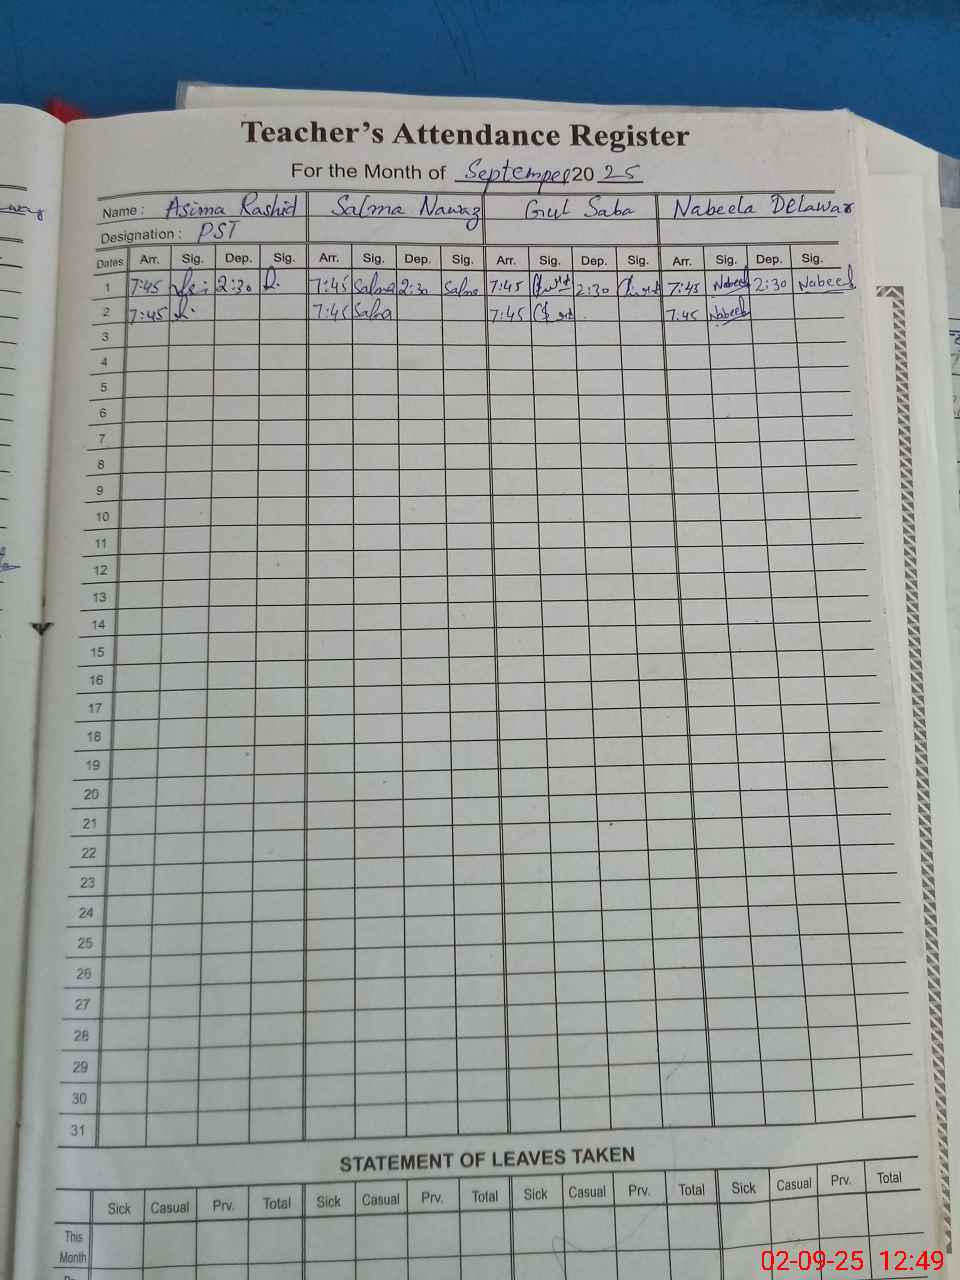 Teacher's Attendance Register
For the Month of Septemper 2025
Name : Asima Rashid Salma Nawaz Gul Saba Nabeela Delawar
Designation : PST
Dates Arr. Sig. Dep. Sig. Arr. Sig. Dep. Sig. Arr. Sig. Dep. Sig. Arr. Sig. Dep. Sig.
1 7:45 2:30 7:45 Salma 2:30 Salma 7:45 2:30 7:45 Nabeel 2:30 Nabeel
2 7:45 7:45 Salma 7:45 7:45 Nabeel
3
4
5
6
7
8
9
10
11
12
13
14
15
16
17
18
19
20
21
22
23
24
25
26
27
28
29
30
31
STATEMENT OF LEAVES TAKEN
Sick Casual Prv. Total Sick Casual Prv. Total Sick Casual Prv. Total Sick Casual Prv. Total
This
Month
02-09-25 12:49